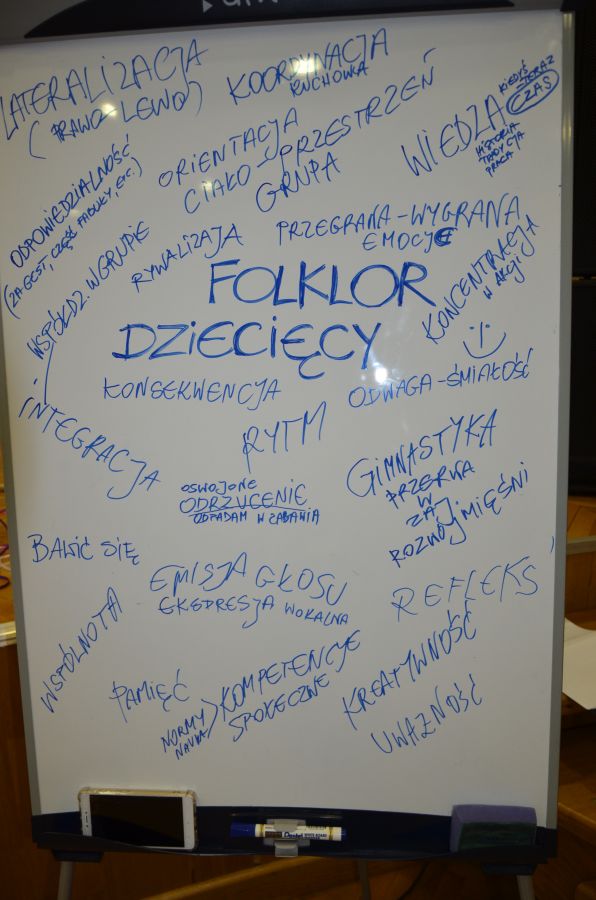 LATERALIZACJA
(PRAWO-LEWO)
KOORDYNACJA
RUCHOWA
ORIENTACJA
CIAŁO-PRZESTRZEŃ
GRUPA
WIEDZA
KIEDYŚ
TERAZ
CZAS
HISTORIA
TRADYCJA
PRACA
ODPOWIEDZIALNOŚĆ
(ZA GEST, CZĘŚĆ FABUŁY, ETC.)
WSPÓŁDZ. W GRUPIE
RYWALIZAJA
PRZEGRANA-WYGRANA
EMOCJE
KONCENTRACJA
W AKCJI
FOLKLOR
DZIECIĘCY
KONSEKWENCJA
ODWAGA-ŚMIAŁOŚĆ
INTEGRACJA
RYTM
OSWOJONE
ODRZUCENIE
ODPADAM W ZABAWIA
GIMNASTYKA
PRZERWA
W
ZAJ
ROZWÓJ MIĘŚNI
BAWIĆ SIĘ
EMISJA GŁOSU
EKSPRESJA WOKALNA
REFLEKS
WSPÓLNOTA
PAMIĘĆ
NORMY
NAUKA
KOMPETENCJE
SPOŁECZNE
KREATYWNOŚĆ
UWAŻNOŚĆ
Pentel